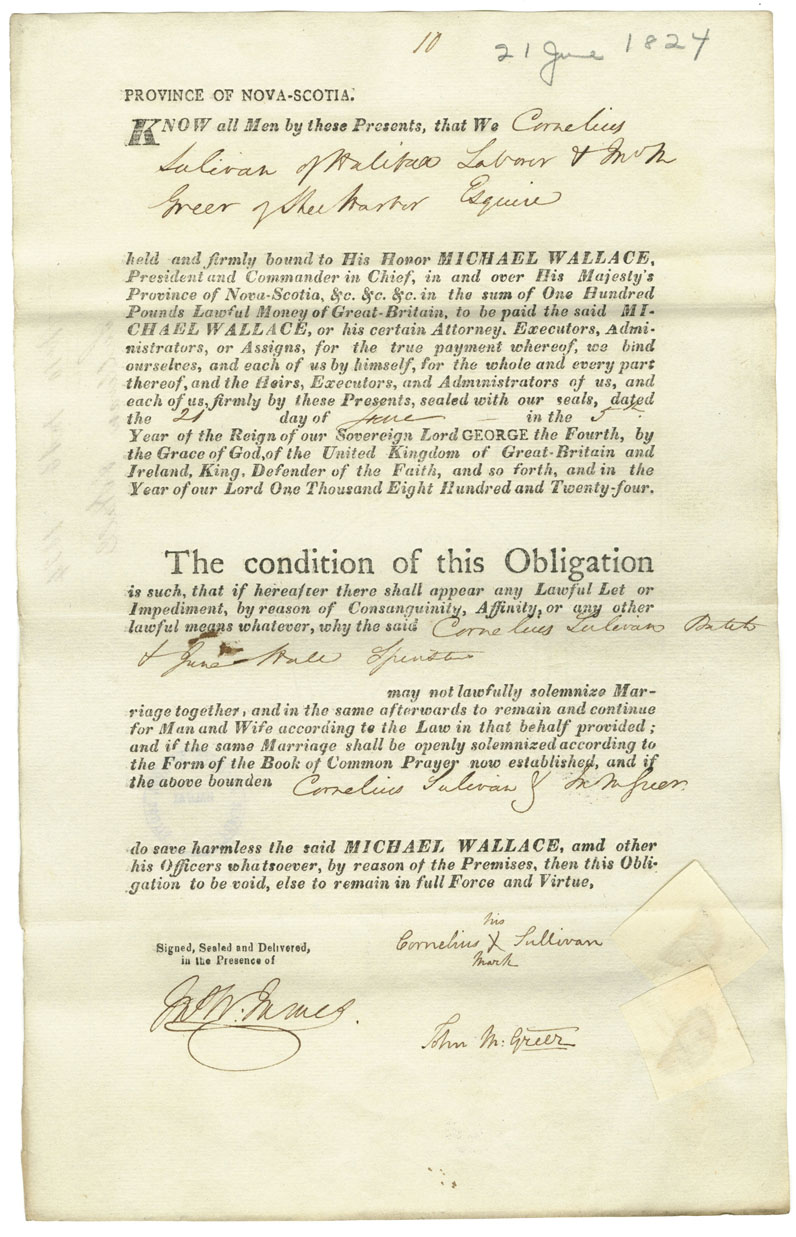 10
21 June 1824
PROVINCE OF NOVA-SCOTIA.
KNOW all Men by these Presents, that We Cornelius
Sulivan of Halifax Laborer & Jno M
Greer of Shee Harbor Esquire
held and firmly bound to His Honor MICHAEL WALLACE,
President and Commander in Chief, in and over His Majesty's
Province of Nova-Scotia, &c. &c. &c. in the sum of One Hundred
Pounds Lawful Money of Great-Britain, to be paid the said MI-
CHAEL WALLACE, or his certain Attorney. Executors, Admi-
nistrators, or Assigns, for the true payment whereof, we bind
ourselves, and each of us by himself, for the whole and every part
thereof, and the Heirs, Executors, and Administrators of us, and
each of us, firmly by these Presents, sealed with our seals, dated
the 21 day of June — in the 5th
Year of the Reign of our Sovereign Lord GEORGE the Fourth, by
the Grace of God, of the United Kingdom of Great-Britain and
Ireland, King, Defender of the Faith, and so forth, and in the
Year of our Lord One Thousand Eight Hundred and Twenty-four.
The condition of this Obligation
is such, that if hereafter there shall appear any Lawful Let or
Impediment, by reason of Consanguinity, Affinity, or any other
lawful means whatever, why the said Cornelius Sulivan Batch
& Jane Hall Spinster
may not lawfully solemnize Mar-
riage together, and in the same afterwards to remain and continue
for Man and Wife according to the Law in that behalf provided;
and if the same Marriage shall be openly solemnized according to
the Form of the Book of Common Prayer now established, and if
the above bounden Cornelius Sulivan & Jn M Greer
do save harmless the said MICHAEL WALLACE, amd other
his Officers whatsoever, by reason of the Premises, then this Obli-
gation to be void, else to remain in full Force and Virtue,
his
Cornelius X Sullivan
Mark
Signed, Sealed and Delivered,
in the Presence of
Jno W. James
John M: Greer